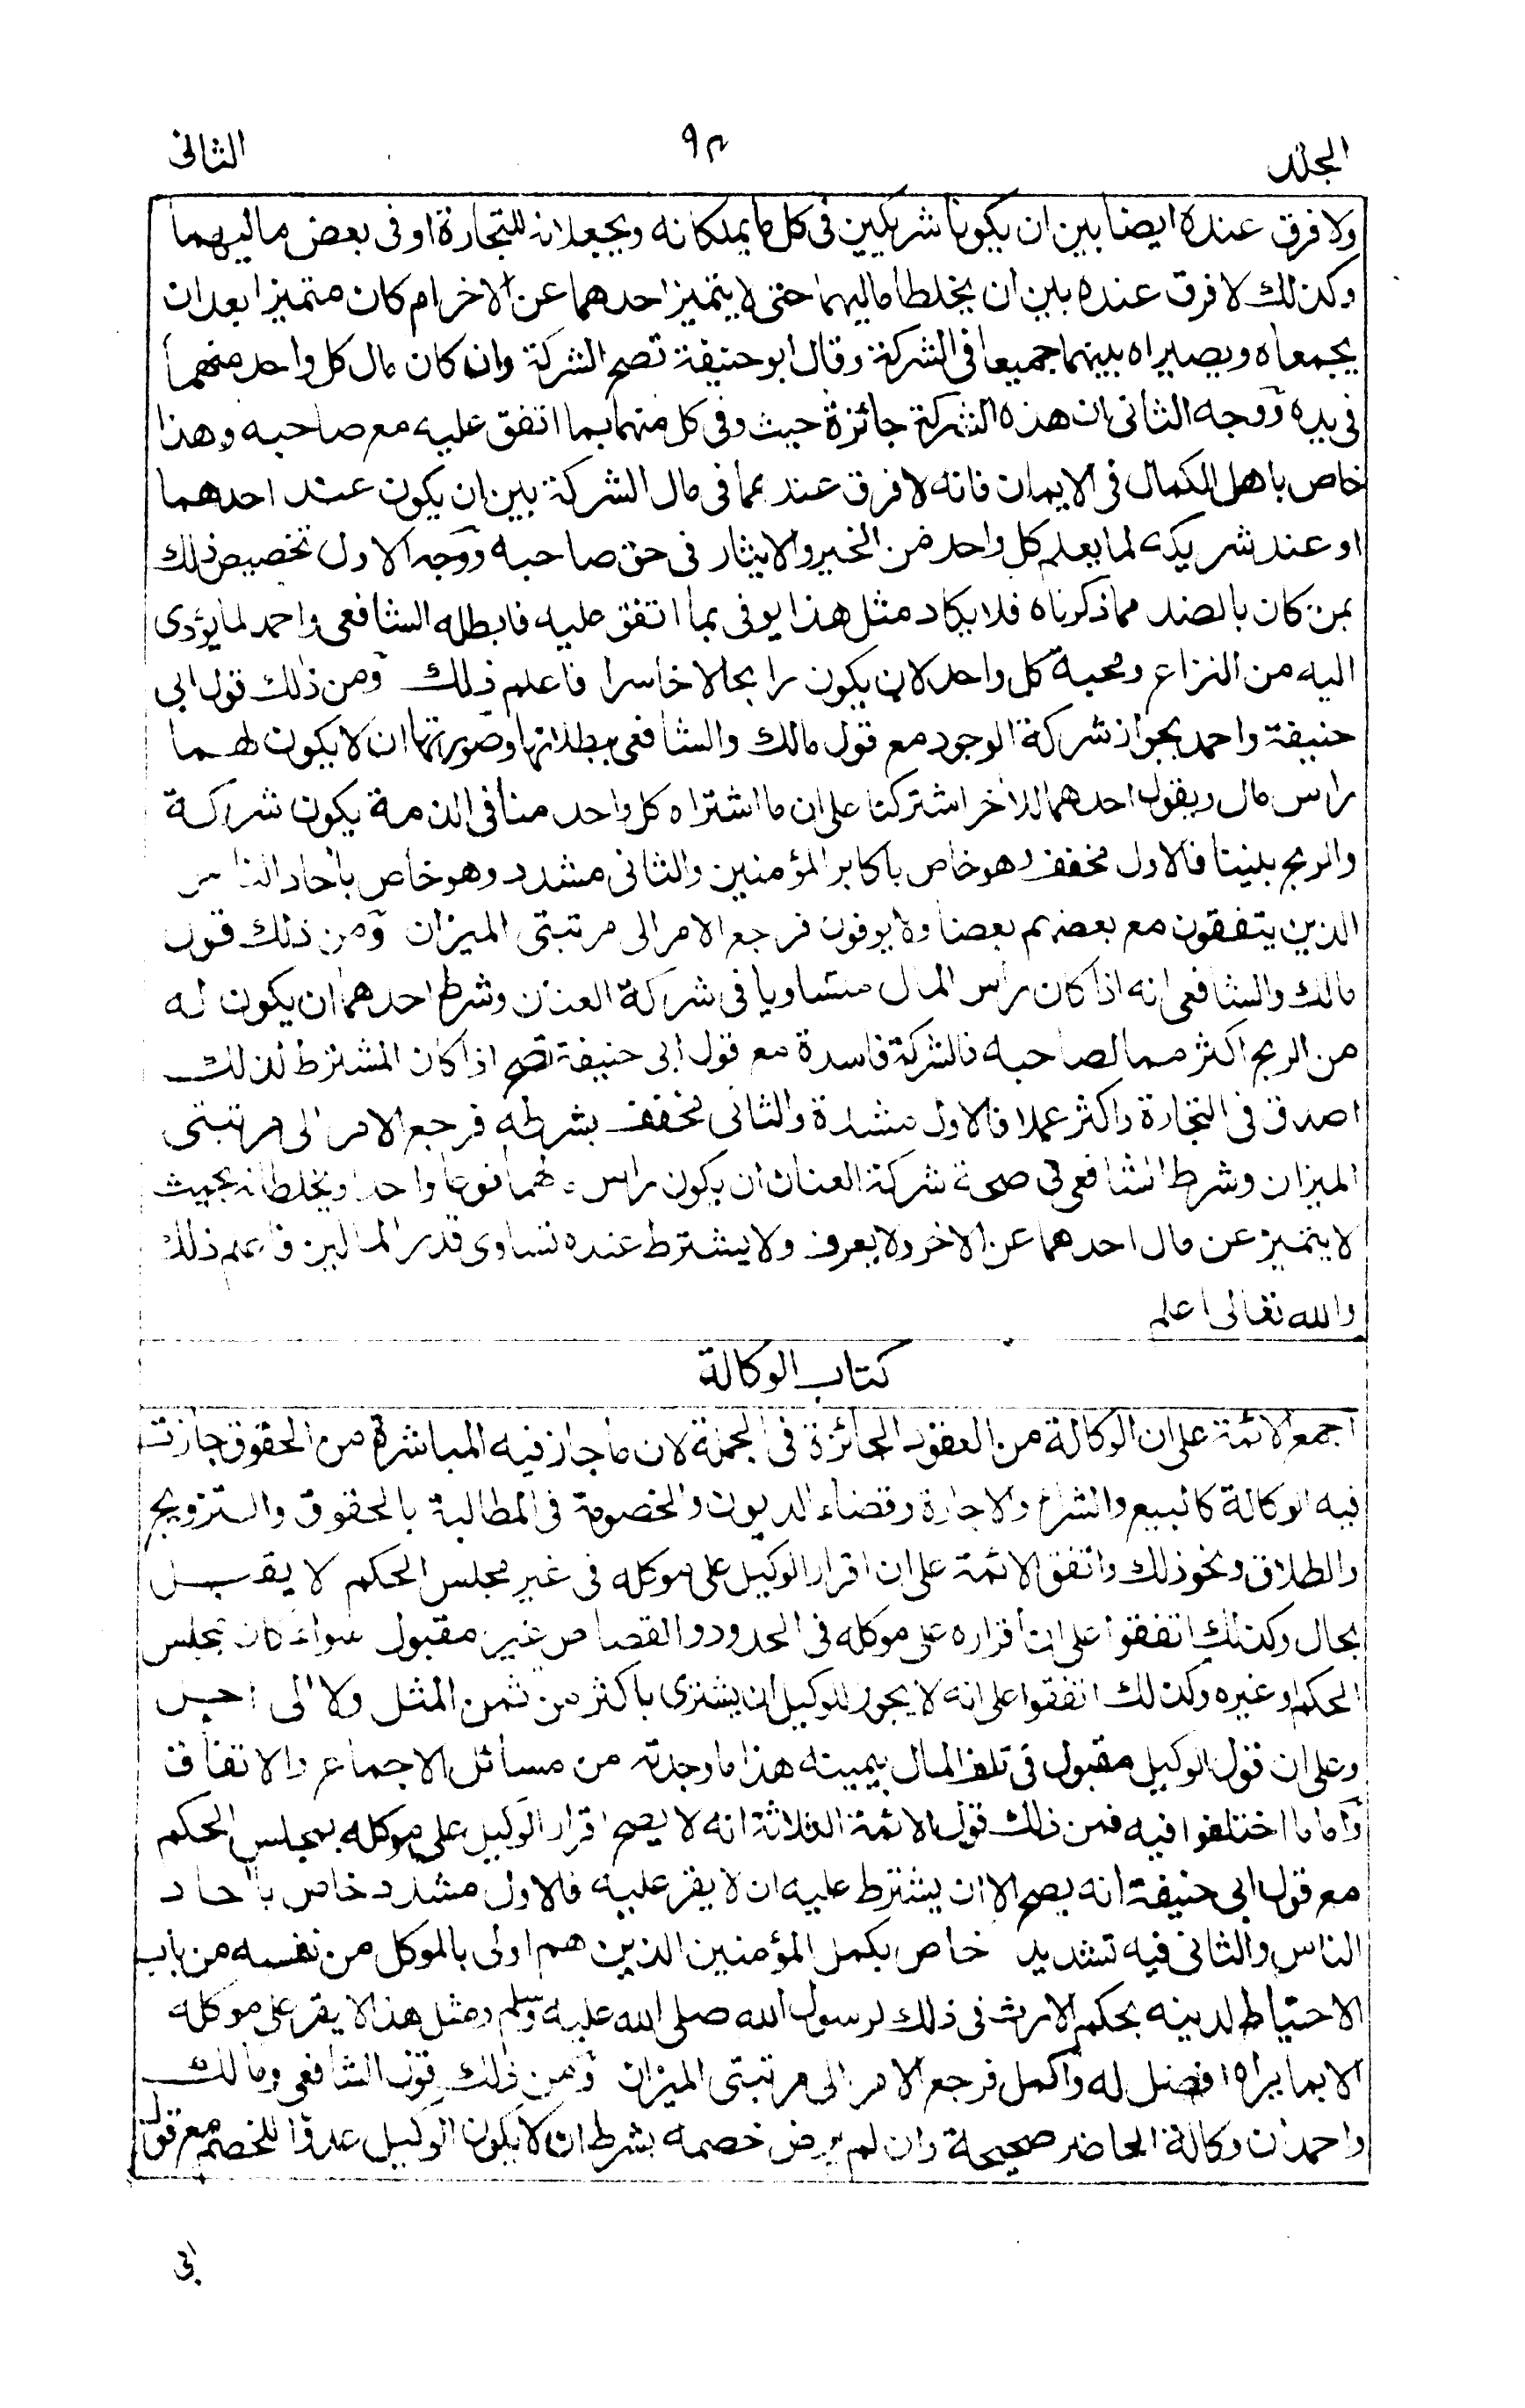 المجلد
٩٢
الثانى
ولا فرق عنده ايضا بين ان يكونا شريكين فى كل ما يملكانه ويجعلانه للتجارة او فى بعض ماليهما
وكذلك لا فرق عنده بين ان يخلطا ماليهما حتى لا يتميز احدهما عن الاخر ام كان متميزا بعد ان
يجمعاه ويصيراه بينهما جميعا فى الشركة وقال ابو حنيفة تصح الشركة وان كان مال كل واحد منهما
فى يده ووجه الثانى ان هذه الشركة جائزة حيث وفى كل منهما بما اتفق عليه مع صاحبه وهذا
خاص باهل الكمال فى الايمان فانه لا فرق عندهما فى مال الشركة بين ان يكون عند احدهما
او عند شريكه لما يعلم كل واحد من الخير والايثار فى حق صاحبه ووجه الاول تخصيص ذلك
بمن كان بالضد مما ذكرناه فلا يكاد مثل هذا يوفى بما اتفق عليه فابطله الشافعى واحمد لما يؤدى
اليه من النزاع ومحبة كل واحد لان يكون رابحا لا خاسرا فاعلم ذلك ومن ذلك قول ابى
حنيفة واحمد بجواز شركة الوجود مع قول مالك والشافعى ببطلانها وصورتها ان لا يكون لهما
راس مال ويقول احدهما للاخر اشتركنا على ان ما اشتراه كل واحد منا فى الذمة يكون شركة
والربح بيننا فالاول مخفف وهو خاص باكابر المؤمنين والثانى مشدد وهو خاص باحاد الناس
الذين يتفقون مع بعضهم بعضا ولا يوفون فرجع الامر الى مرتبتى الميزان ومن ذلك قول
مالك والشافعى انه اذا كان راس المال متساويا فى شركة العنان وشرط احدهما ان يكون له
من الربح اكثر مما لصاحبه فالشركة فاسدة مع قول ابى حنيفة تصح اذا كان المشترط لذلك
احذق فى التجارة واكثر عملا فالاول مشدد والثانى مخفف بشرطه فرجع الامر الى مرتبتى
الميزان وشرط الشافعى فى صحة شركة العنان ان يكون راس مالهما نوعا واحدا ويخلطانه بحيث
لا يتميز عن مال احدهما عن الاخر ولا يعرف ولا يشترط عنده تساوى قدر المالين فاعلم ذلك
والله تعالى اعلم
كتاب الوكالة
اجمع الائمة على ان الوكالة من العقود الجائزة فى الجملة لان ما جاز فيه المباشرة من الحقوق جازت
فيه الوكالة كالبيع والشراء والاجارة وقضاء الديون والخصومة فى المطالبة بالحقوق والتزويج
والطلاق ونحو ذلك واتفق الائمة على ان اقرار الوكيل على موكله فى غير مجلس الحكم لا يقبل
بحال وكذلك اتفقوا على ان اقراره على موكله فى الحدود والقصاص غير مقبول سواء كان بمجلس
الحكم او غيره وكذلك اتفقوا على انه لا يجوز للوكيل ان يشترى باكثر من ثمن المثل ولا الى اجل
وعلى ان قول الوكيل مقبول فى تلف المال بيمينه هذا ما وجدته من مسائل الاجماع والاتفاق
واما ما اختلفوا فيه فمن ذلك قول الائمة الثلاثة انه لا يصح اقرار الوكيل على موكله بمجلس الحكم
مع قول ابى حنيفة انه يصح الا ان يشترط عليه ان لا يقر عليه فالاول مشدد خاص باحاد
الناس والثانى فيه تشديد خاص بكمل المؤمنين الذين هم اولى بالموكل من نفسه من باب
الاحتياط لدينه بحكم الارث فى ذلك لرسول الله صلى الله عليه وسلم ومثل هذا لا يقر على موكله
الا بما يراه افضل له واكمل فرجع الامر الى مرتبتى الميزان ومن ذلك قول الشافعى ومالك
واحمد ان وكالة الحاضر صحيحة وان لم يرض خصمه بشرط ان لا يكون الوكيل عدوا للخصم مع قول
ابى